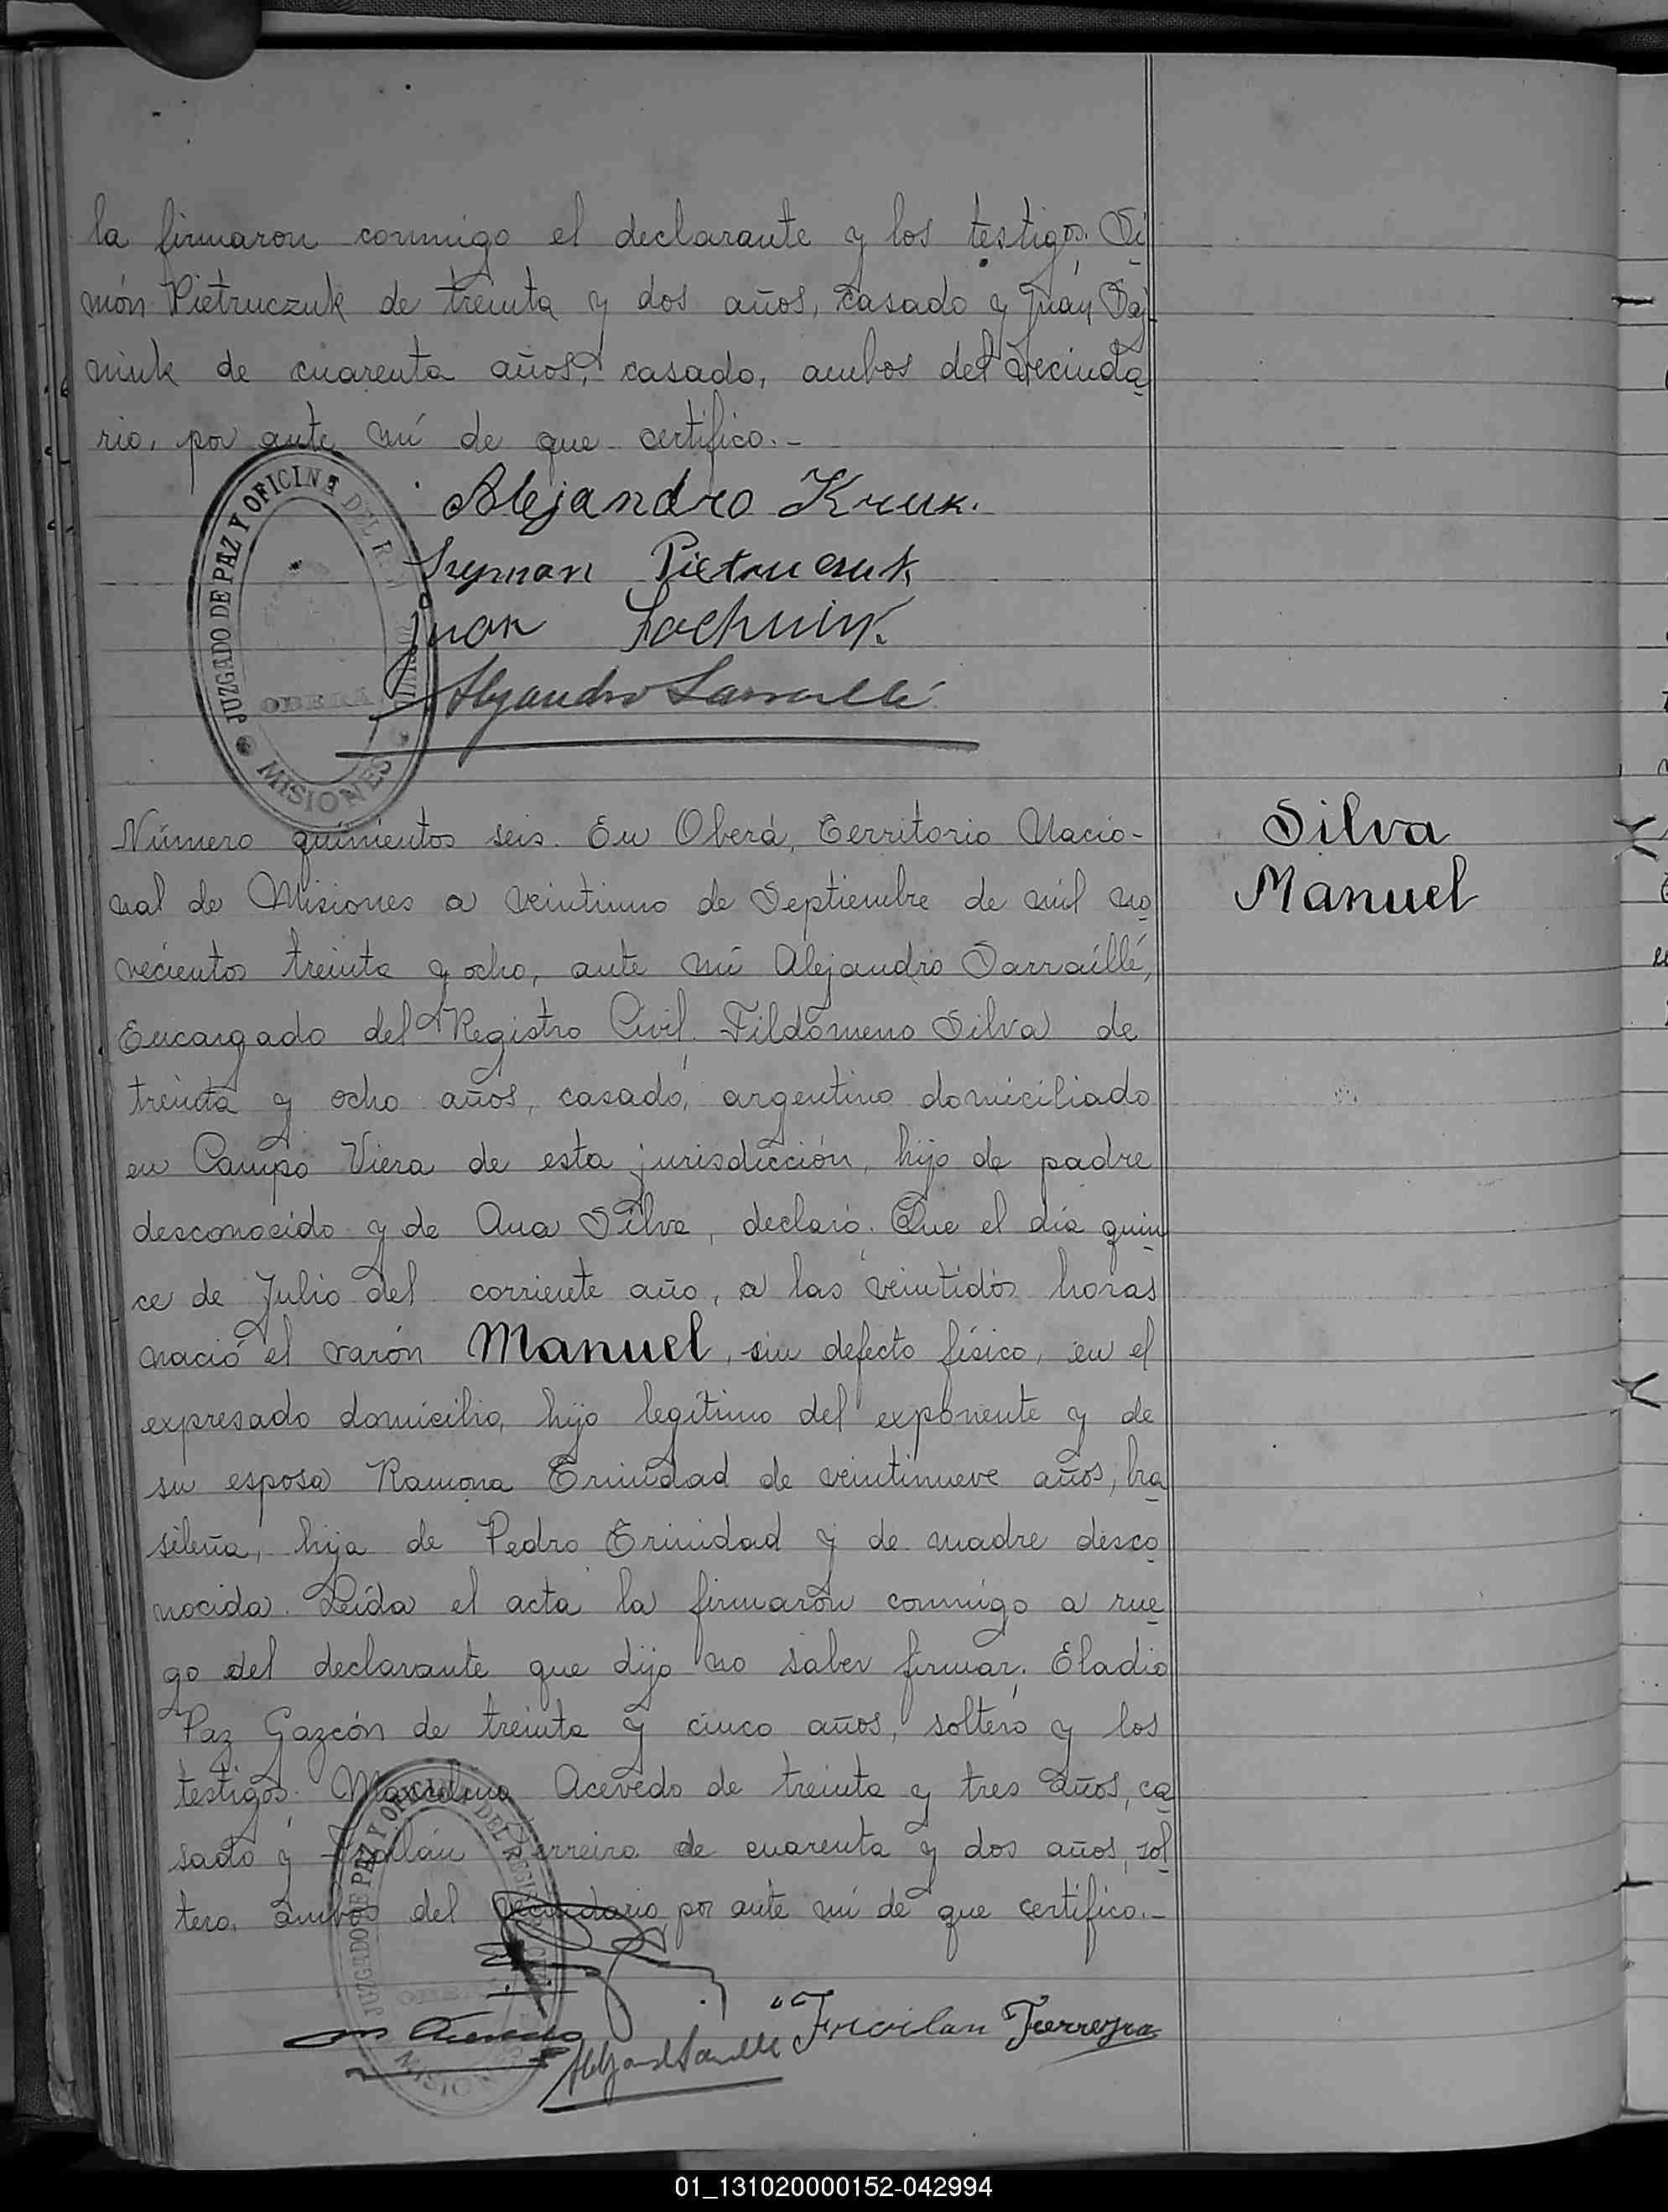 la firmaron conmigo el declarante y los testigos. Si
món Pietruczuk de treinta y dos años, casado y Juan Saj
niuk de cuarenta años, casado, ambos del vecinda
rio, por ante mí de que certifico.-
Alejandro Kruk.
Szyman Pietruczuk
Juan
Alejandro Sarraillé
JUZGADO DE PAZ Y OFICINA DEL
OBERÁ
MISIONES
Número quinientos seis. En Oberá, Territorio Nacio-
nal de Misiones a veintiuno de Septiembre de mil no
vecientos treinta y ocho, ante mí Alejandro Sarraillé,
Encargado del Registro Civil. Fildomeno Silva de
treinta y ocho años, casado, argentino domiciliado
en Campo Viera de esta jurisdicción, hijo de padre
desconocido y de Ana Silva, declaró. Que el día quin
ce de Julio del corriente año, a las veintidós horas
nació el varón Manuel, sin defecto físico, en el
expresado domicilio, hijo legítimo del exponente y de
su esposa Ramona Trinidad de veintinueve años, bra
sileña, hija de Pedro Trinidad y de madre desco
nocida. Leída el acta la firmaron conmigo a rue
go del declarante que dijo no saber firmar. Eladio
Paz Gazcón de treinta y cinco años, soltero y los
testigos. Marcelino Acevedo de treinta y tres años, ca
sado y Froilán Ferreira de cuarenta y dos años, sol
tero, ambos del vecindario, por ante mí de que certifico.-
Silva
Manuel
M Acevedo
Alejandro Sarraillé
Frcoilan Ferreyra
JUZGADO DE PAZ Y OFICINA DEL
OBERÁ
MISIONES
01_131020000152-042994